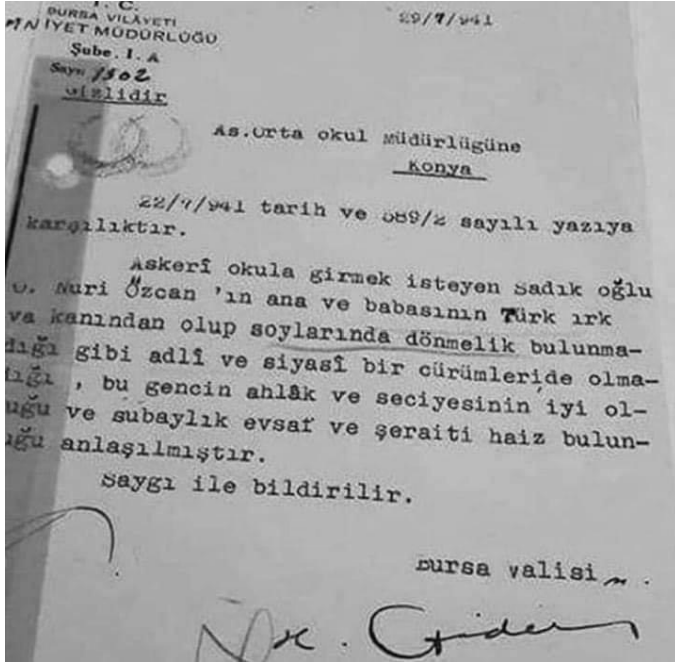 T. C.
BURSA VİLÂYETİ
MNİYET MÜDÜRLÜĞÜ
Şube. I. A
Sayı 1502
Gizlidir
29/7/941
As.Orta okul Müdürlügüne
Konya
22/7/941 tarih ve 689/2 sayılı yazıya
karşılıktır.
Askerî okula girmek isteyen Sadık oğlu
O. Nuri Özcan 'ın ana ve babasının Türk ırk
va kanından olup soylarında dönmelik bulunma-
dığı gibi adlî ve siyasî bir cürümleride olma-
dığı , bu gencin ahlâk ve seciyesinin iyi ol-
uğu ve subaylık evsaf ve şeraiti haiz bulun-
uğu anlaşılmıştır.
Saygı ile bildirilir.
Bursa Valisi